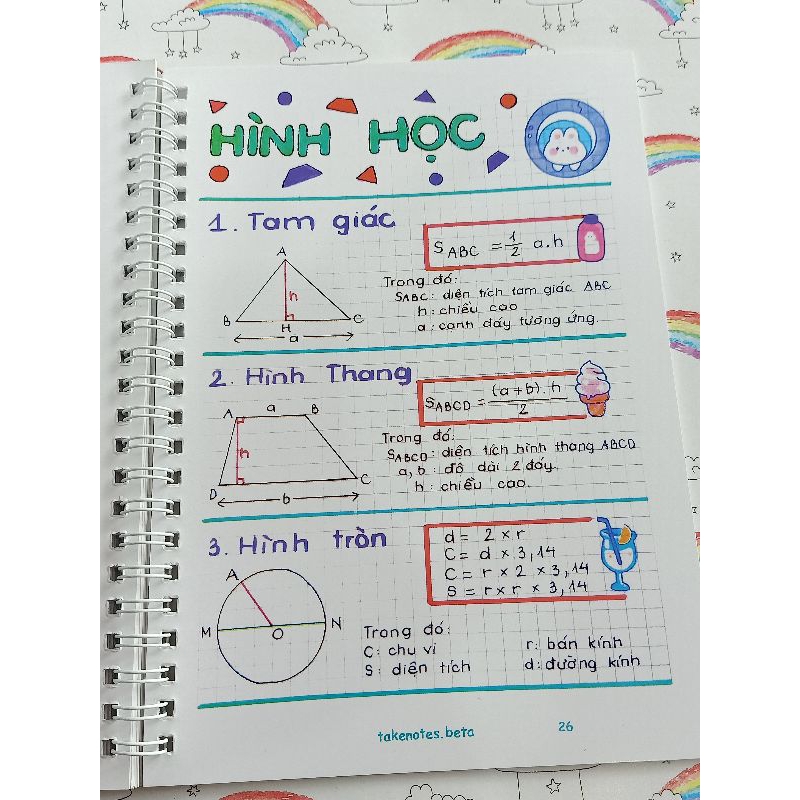 HÌNH HỌC
1. Tam giác
S ABC = 1/2 a.h
A
h
B
H
C
a
Trong đó:
SABC: diện tích tam giác ABC
h: chiều cao
a: cạnh đáy tương ứng.
2. Hình Thang
SABCD = (a+b).h / 2
A
a
B
h
D
C
b
Trong đó:
SABCD: diện tích hình thang ABCD
a, b: độ dài 2 đáy.
h: chiều cao.
3. Hình tròn
d = 2 × r
C = d × 3,14
C = r × 2 × 3,14
S = r × r × 3,14
A
M
O
N
Trong đó:
C: chu vi
r: bán kính
S: diện tích
d: đường kính
takenotes.beta
26